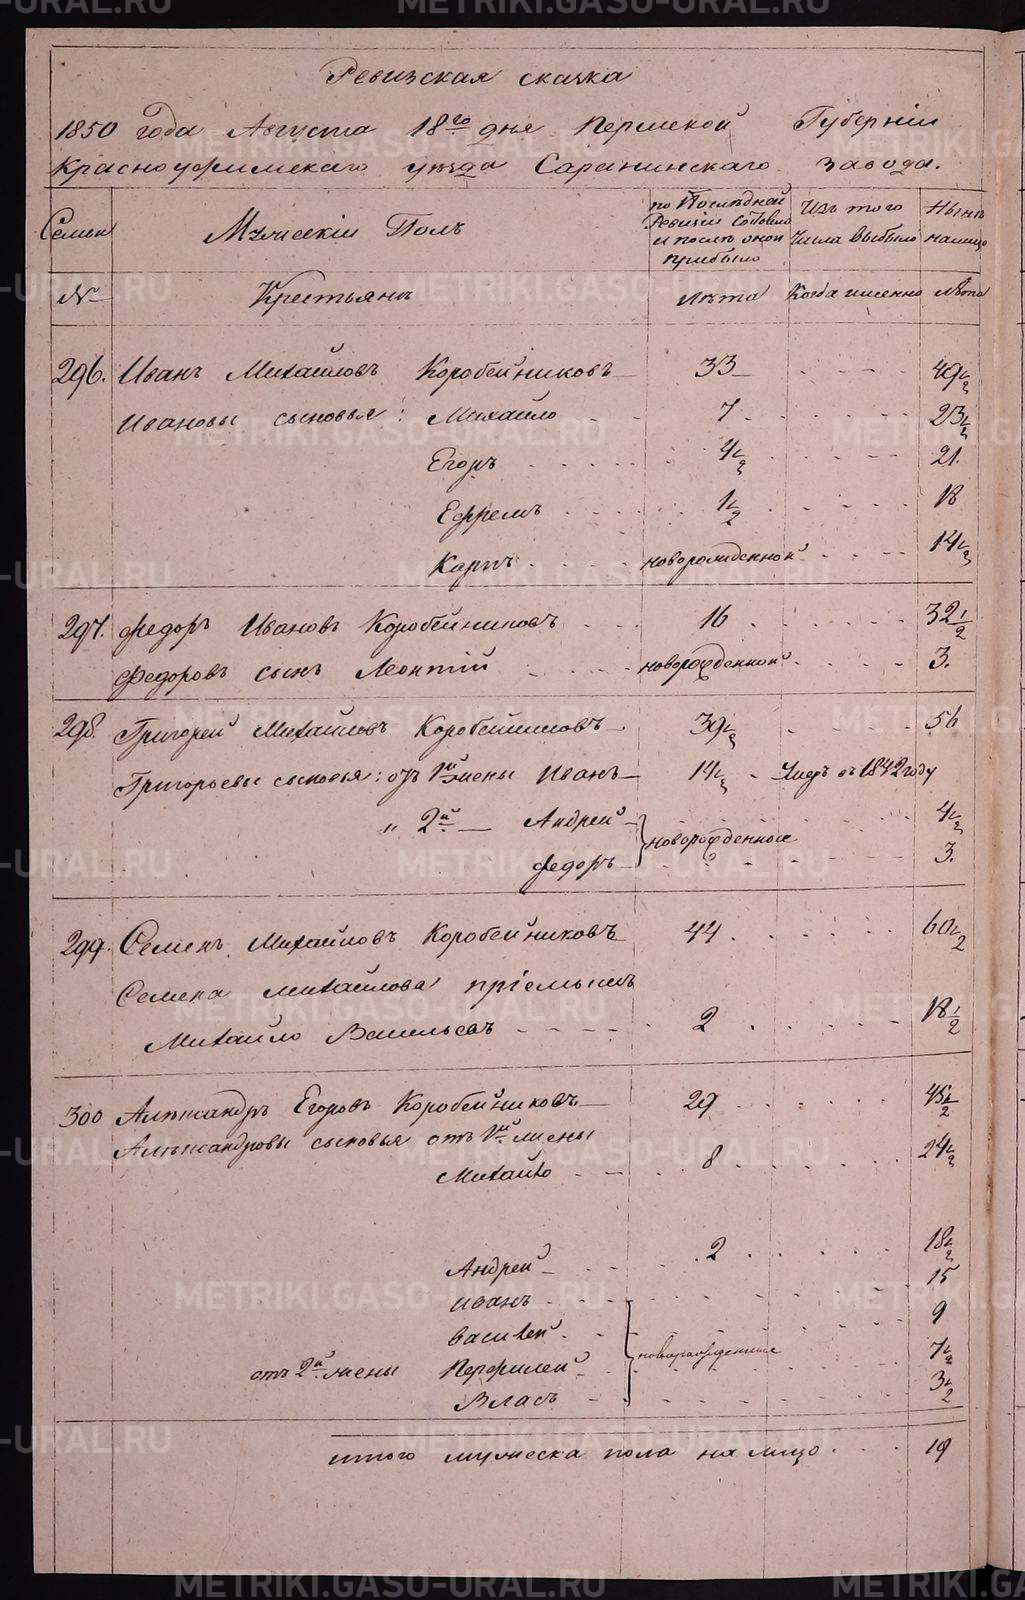 Ревизская сказка
1850 года Августа 18го дня Пермской Губерніи
Красноуфимскаго уѣзда Саранинскаго завода.
Семьи
Мужескій Полъ
по Послѣдней Ревизіи Состояло и послѣ оной прибыло
Изъ того Числа выбыло
Нынѣ налицо
№
Крестьянъ
Лѣта
Когда именно
Лѣта
296. Иванъ Михайловъ Коробейниковъ 33 49½
Ивановы сыновья: Михайло 7 23½
Егоръ 4½ 21.
Ефремъ 1½ 18
Карпъ новорожденной 14½
297. Федоръ Ивановъ Коробейниковъ 16 32½
Федоровъ сынъ Леонтій новорожденной 3.
298. Григорей Михайловъ Коробейниковъ 39½ 56
Григорьевы сыновья: отъ 1й жены Иванъ 14½ Умеръ въ 1842 году
" 2й Андрей новорожденные 4½
Федоръ 3.
299. Семенъ Михайловъ Коробейниковъ 44 60½
Семена Михайлова пріемышъ
Михайло Васильевъ 2 18½
300 Александръ Егоровъ Коробейниковъ 29 45½
Александровы сыновья отъ 1й жены
Михайло 8 24½
Андрей 2 18½
Иванъ 15
Василей новорожденные 9
отъ 2й жены Перфилей 7½
Власъ 3½
итого мужеска пола на лицо 19
METRIKI.GASO-URAL.RU